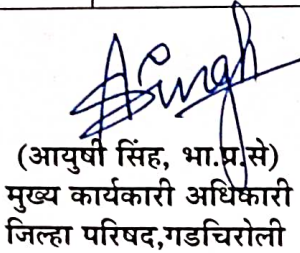 ASingh
(आयुषी सिंह, भा.प्र.से)
मुख्य कार्यकारी अधिकारी
जिल्हा परिषद,गडचिरोली